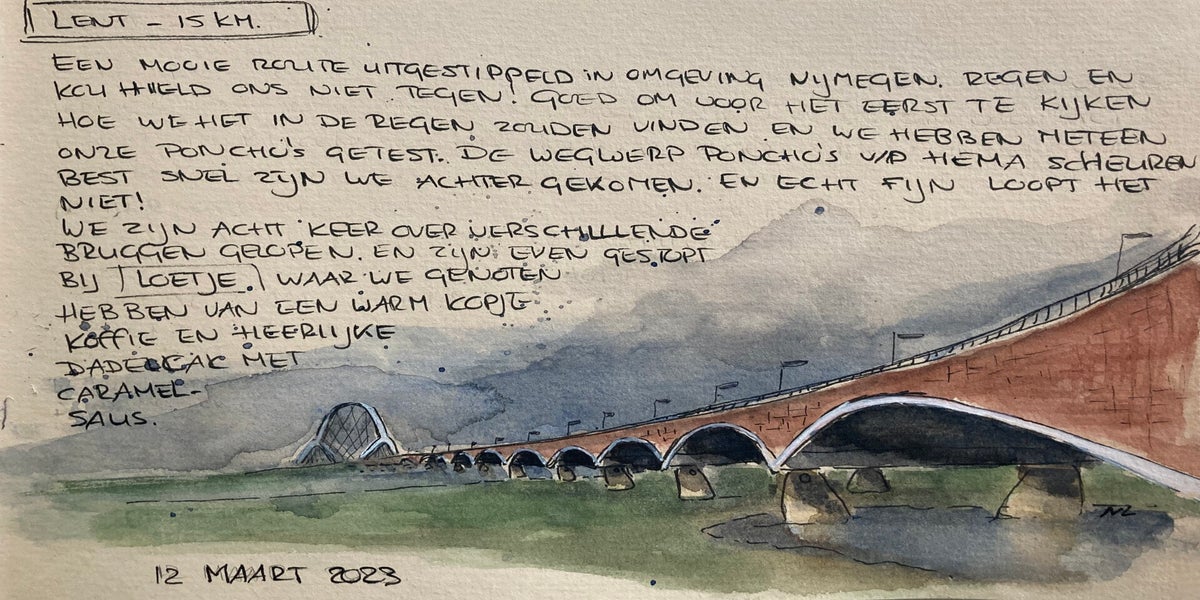 LENT - 15 KM.
EEN MOOIE ROUTE UITGESTIPPELD IN OMGEVING NIJMEGEN. REGEN EN
KOU HIELD ONS NIET TEGEN! GOED OM VOOR HET EERST TE KIJKEN
HOE WE HET IN DE REGEN ZOUDEN VINDEN EN WE HEBBEN METEEN
ONZE PONCHO'S GETEST. DE WEGWERP PONCHO'S V/D HEMA SCHEUREN
BEST SNEL ZIJN WE ACHTER GEKOMEN. EN ECHT FIJN LOOPT HET
NIET!
WE ZIJN ACHT KEER OVER VERSCHILLENDE
BRUGGEN GELOPEN. EN ZIJN EVEN GESTOPT
BIJ LOETJE. WAAR WE GENOTEN
HEBBEN VAN EEN WARM KOPJE
KOFFIE EN HEERLIJKE
DADELCAKE MET
CARAMEL-
SAUS.
NL
12 MAART 2023